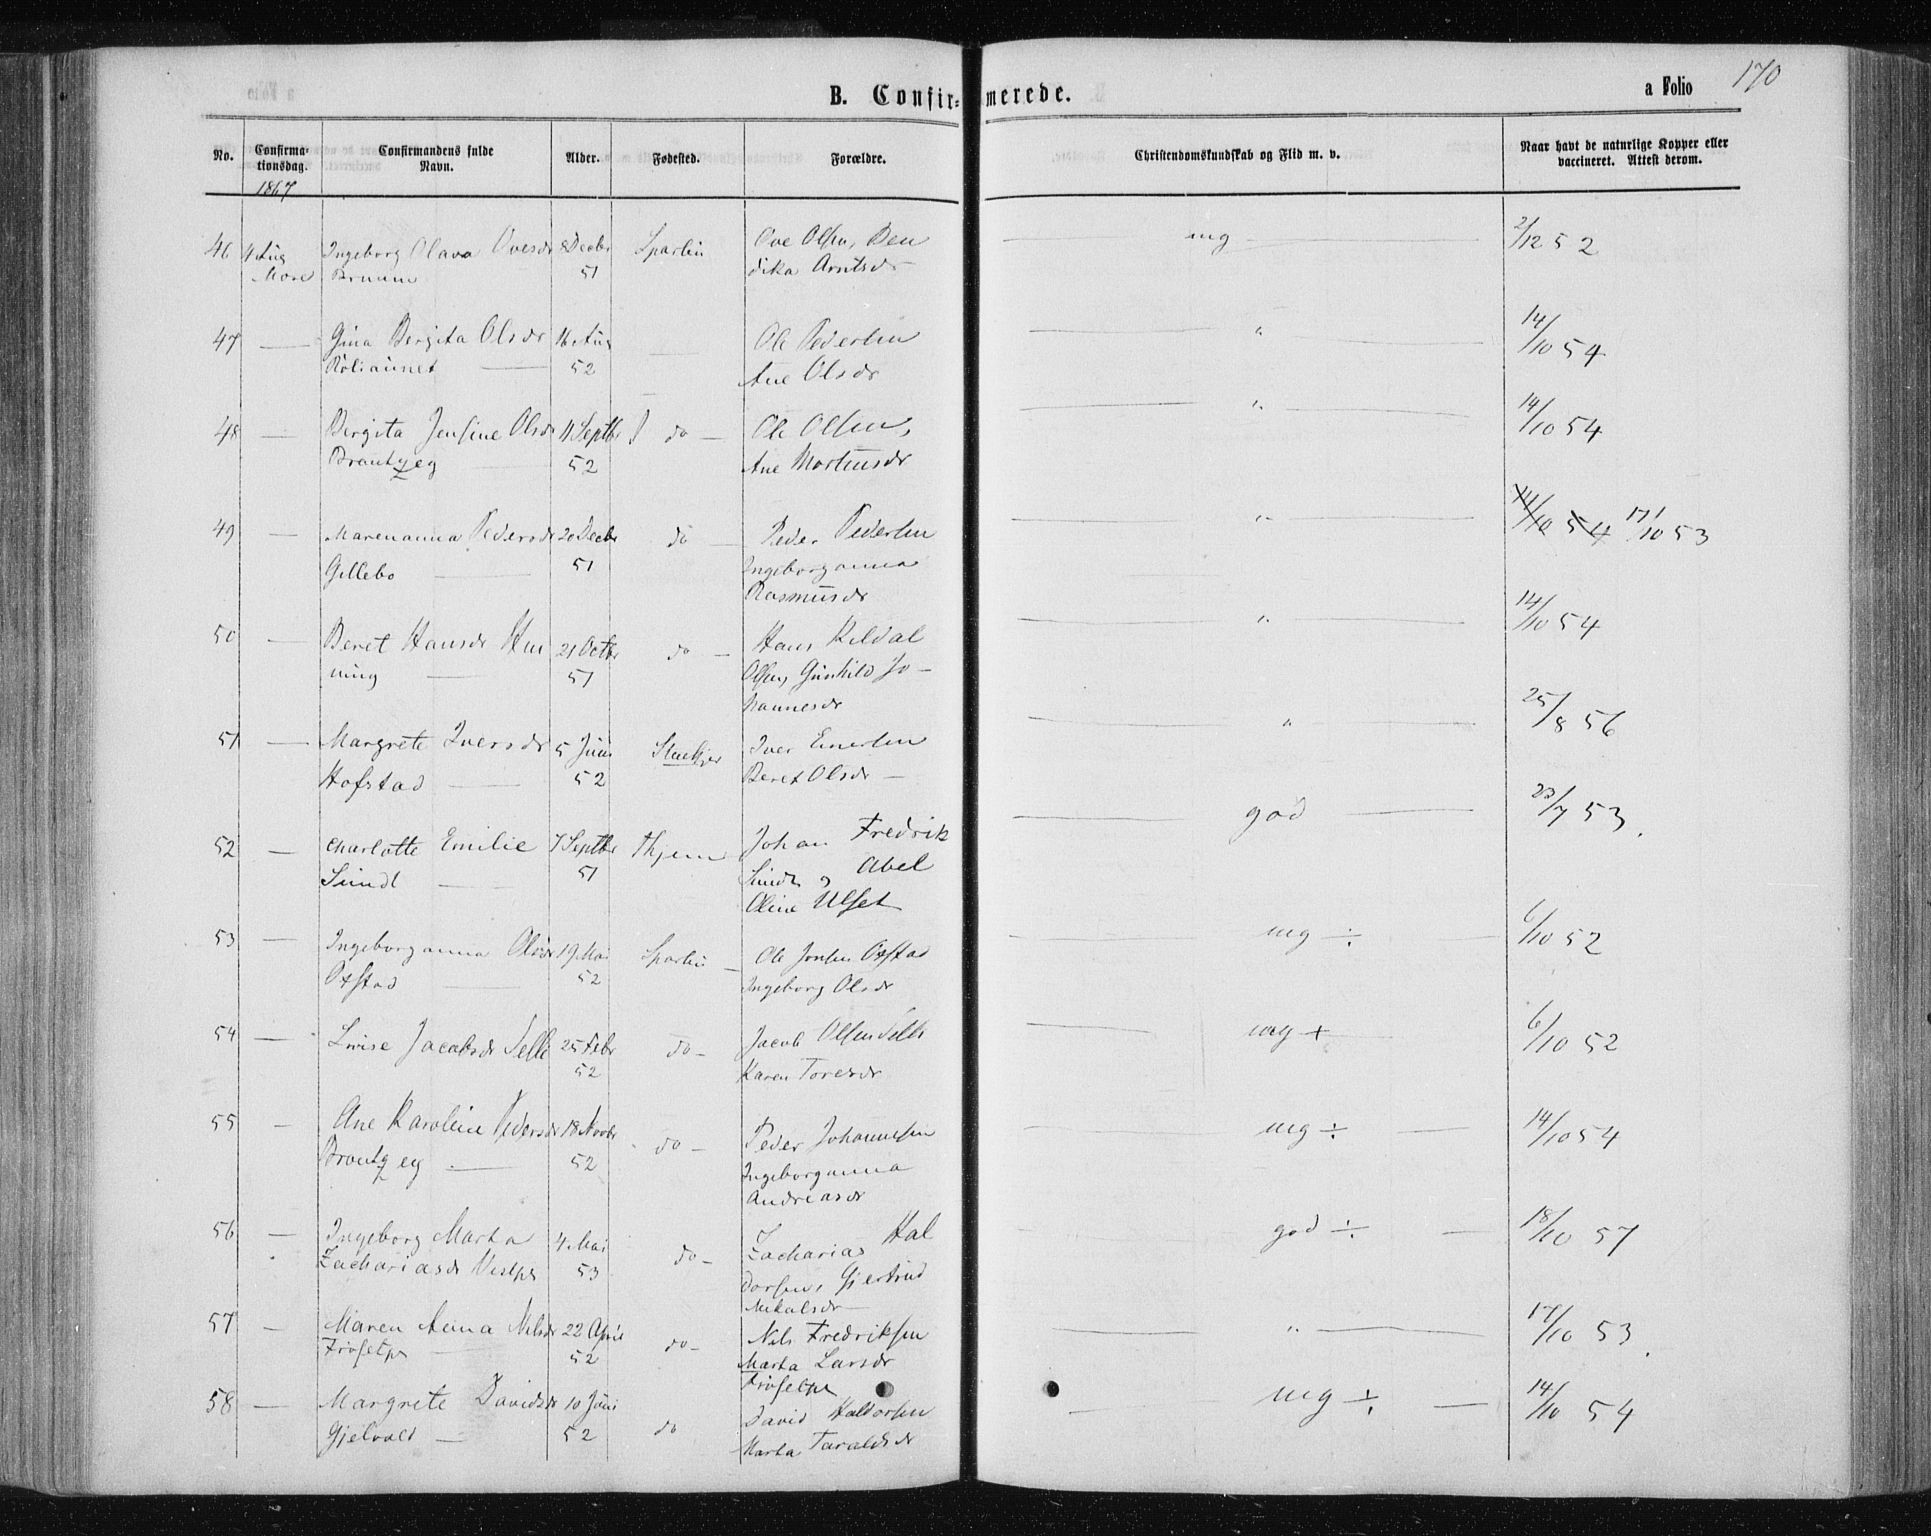 B. Confir=merede.
a Folio 170
No.
Confirma-
tionsdag.
Confirmandens fulde
Navn.
Alder.
Fødested.
Forældre.
Christendomskundskab og Flid m. v.
Naar havt de naturlige Kopper eller
vaccineret. Attest derom.
1867
46 4 Aug Ingeborg Olava Ovesdr 8 Decbr Sparbu Ove Olsen, Ben mg 2/12 52
Mære 51 dika Arntsdr
47 — Gina Bergita Olsdr 16 Aug — Ole Pedersen " 14/10 54
52 Ane Olsdr
48 — Bergita Jensine Olsdr 11 Septbr do — Ole Olsen, " 14/10 54
52 Ane Mortensdr
49 — Marenanna Pedersdr 20 Decbr do — Peder Pedersen " 14/10 54 17/10 53
Gillebo — 51 Ingeborganna
Rasmusdr
50 — Beret Hansdr Hen 21 Octbr do — Hans Kildal " 14/10 54
ning — 51 Olsen, Gunhild Jo-
hannesdr
51 — Margrete Iversdr 5 Juni Stenkjer Iver " 25/8 56
Hofstad — 52 Beret Olsdr —
52 — Charlotte Emilie 7 Septbr Johan Fredrik god 23/7 53.
Sundt — 51 Sundt og Abel
Oline Ulset
53 — Ingeborganna Olsdr 19 Mai Sparbu — Ole Jonsen Oxstad mg ÷ 6/10 52
Oxstad — 52 Ingeborg Olsdr
54 — Lovise Jacobsdr Selli 25 Febr do — Jacob Olsen Selli mg + 6/10 52
52 Karen Toresdr
55 — Ane Karoline Pedersdr 18 Novbr do — Peder Johannesen mg ÷ 14/10 54
52 Ingeborganna
Andreasdr
56 — Ingeborg Marta 4 Mai do — Zacharias Hal god ÷ 18/10 57
Zachariasdr 53 dorsen, Gjertrud
Mikalsdr
57 — Maren Anna Nilsdr 22 April do — Nils Fredriksen " 17/10 53.
52 Marta Larsdr
58 — Margrete Davidsdr 10 Juni do David Haldorsen mg ÷ 14/10 54
Gjelvald — 52 Marta Taraldsdr